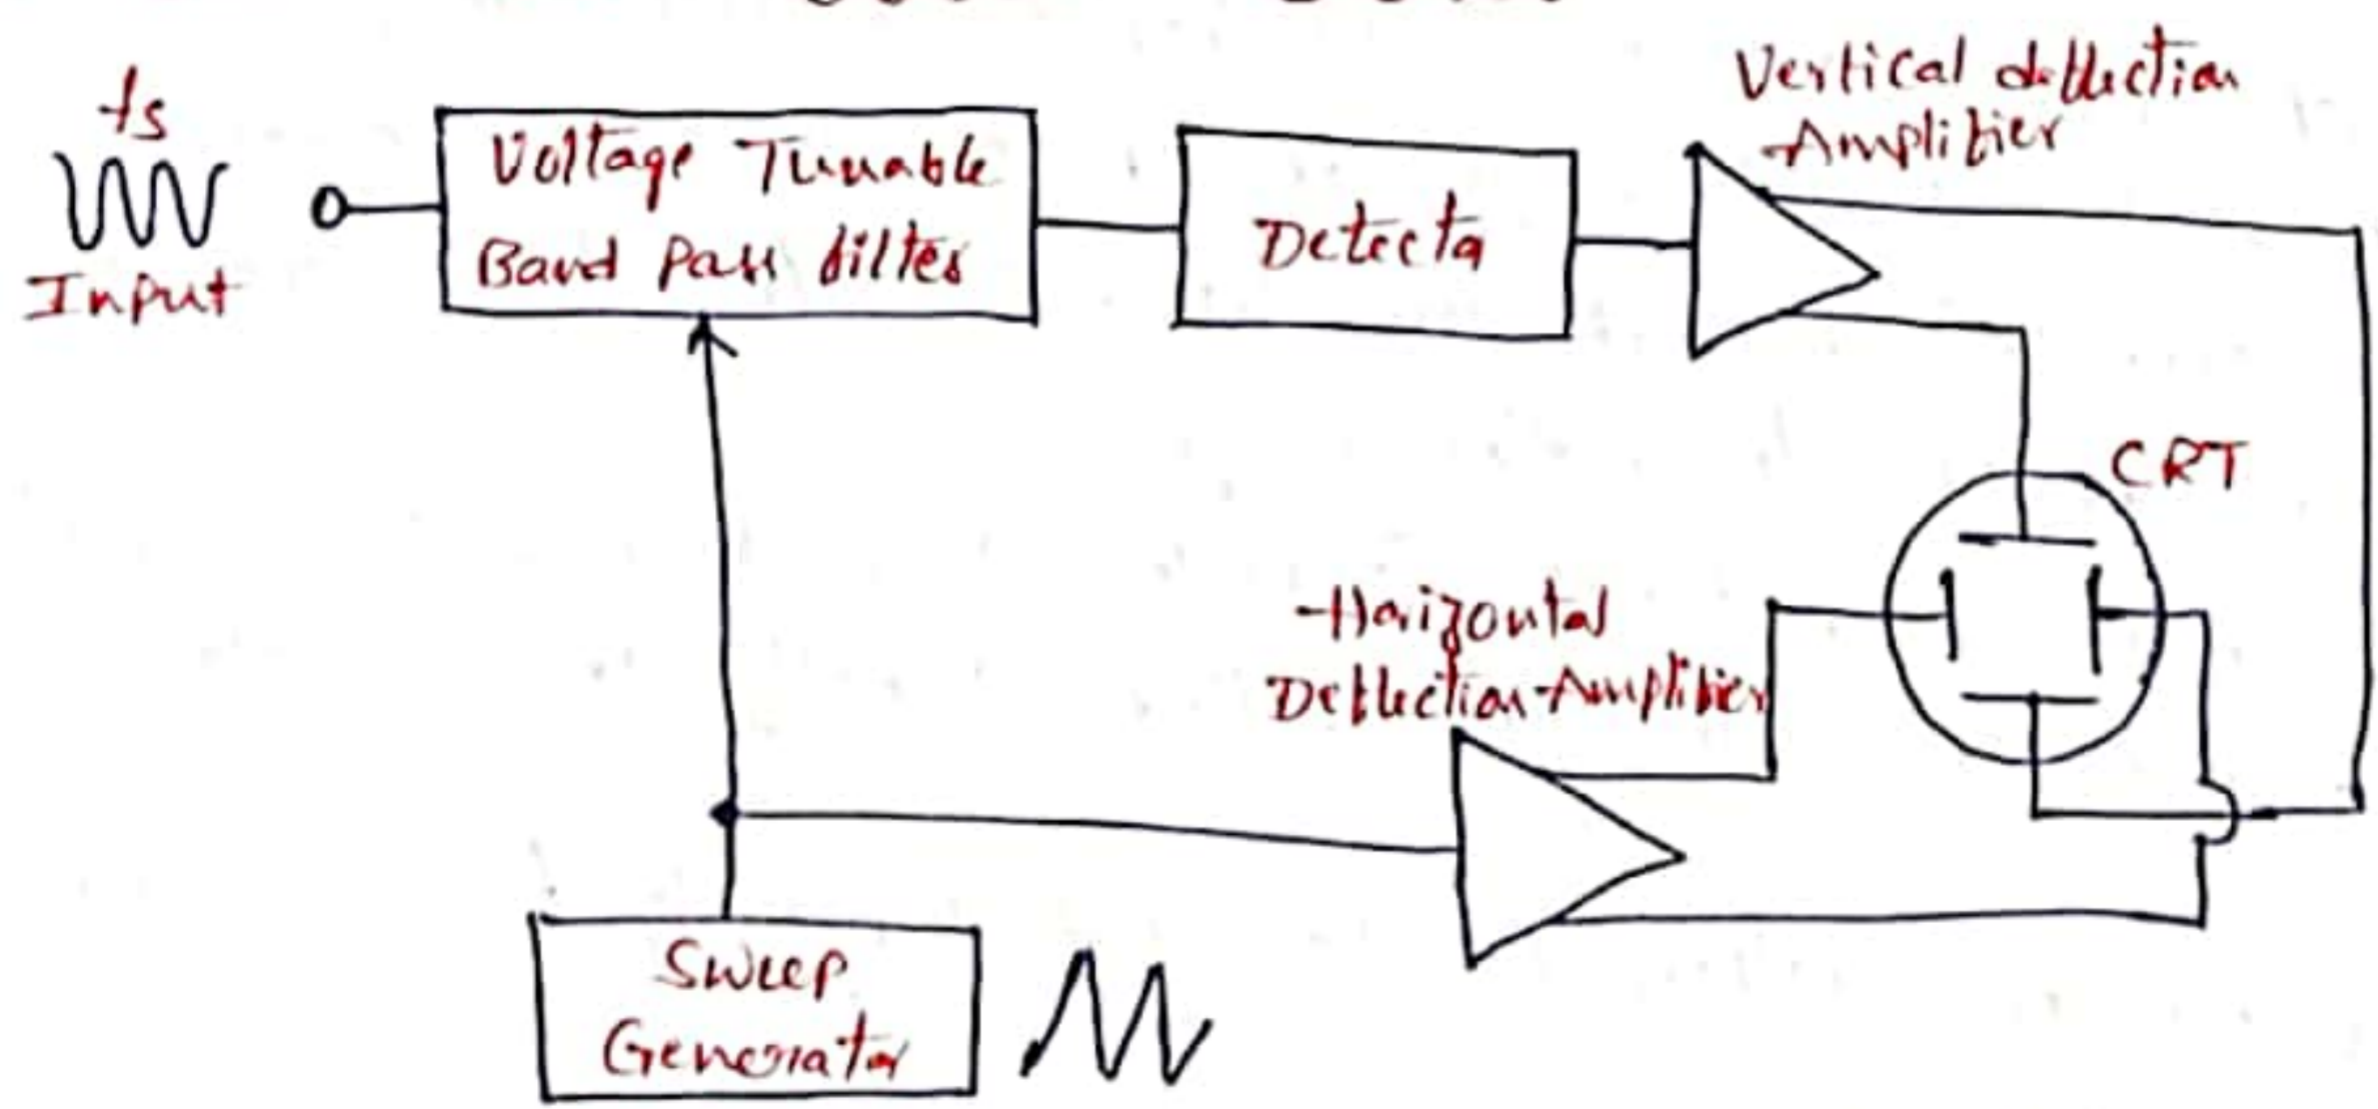 fs
Input
Voltage Tunable
Band Pass filter
Detector
Vertical deflection
Amplifier
CRT
Horizontal
Deflection Amplifier
Sweep
Generator